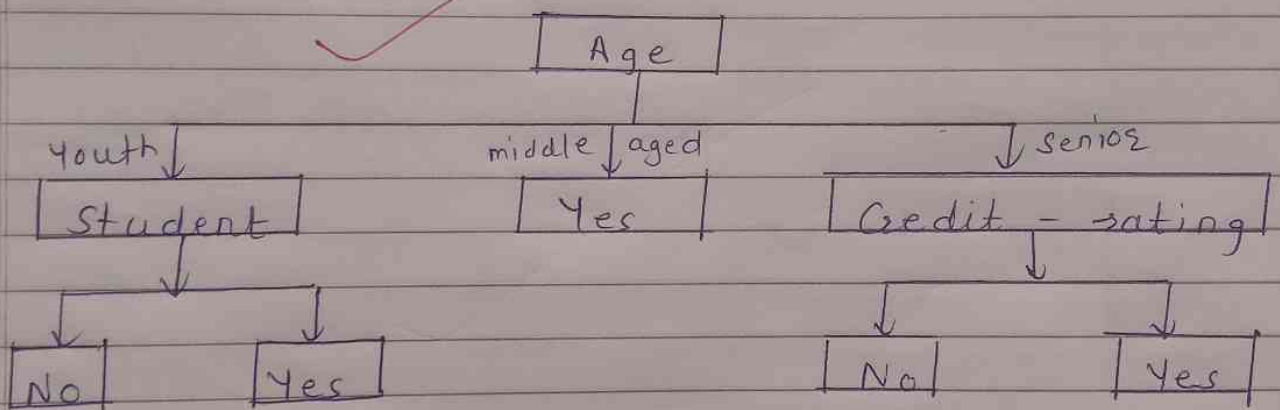 Age
youth middle aged senior
Student Yes Credit - rating
No Yes No Yes